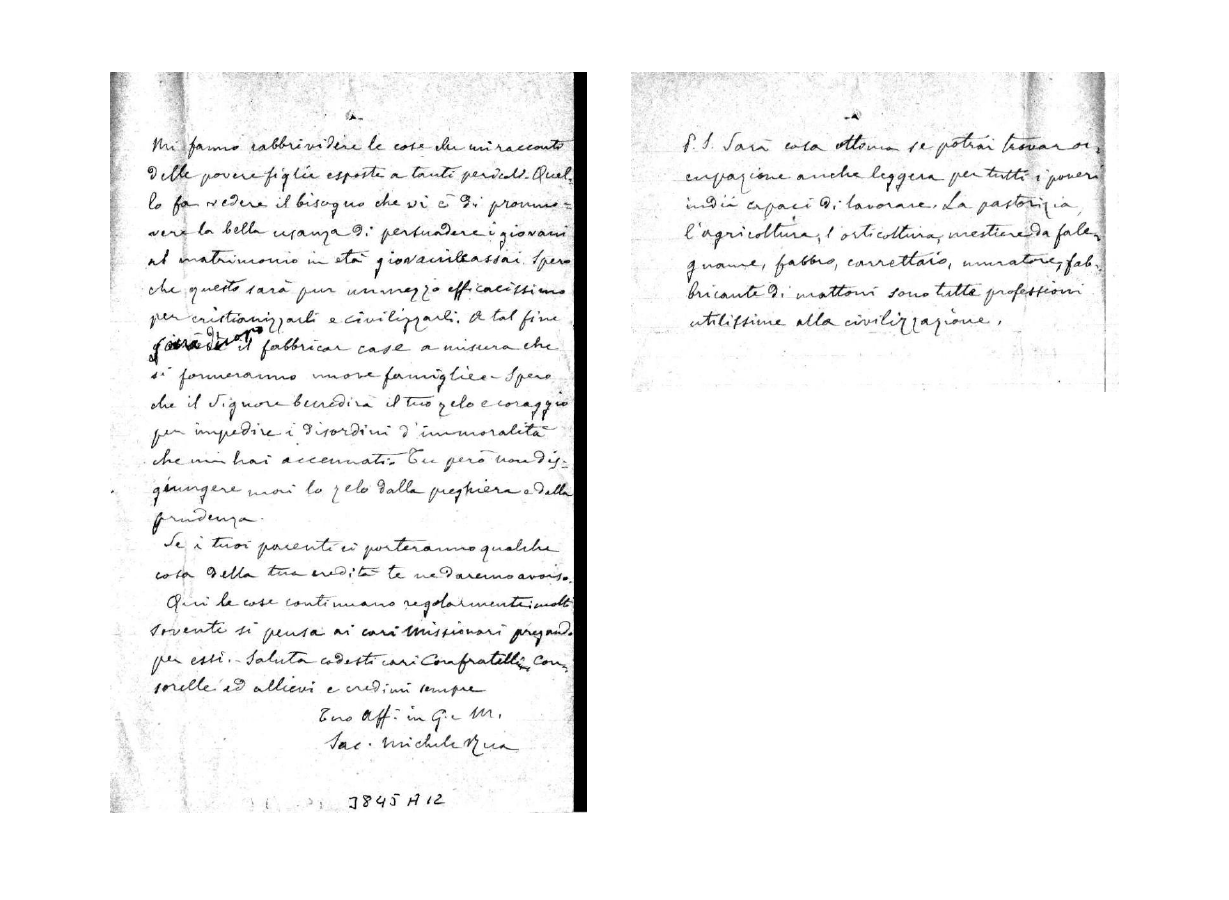 Mi fanno rabbrividire le cose che mi racconti
delle povere figlie esposte a tanti pericoli. Quel-
lo fa vedere il bisogno che vi è di promuo=
vere la bella usanza di persuadere i giovani
al matrimonio in età giovanile assai. Spero
che questo sarà pur un mezzo efficacissimo
per cristianizzarli e civilizzarli. A tal fine
il fabbricar case a misura che
si formeranno nuove famiglie. Spero
che il Signore benedirà il tuo zelo e coraggio
per impedire i disordini d'immoralità
che mi hai accennati. Tu però non dis=
giungere mai lo zelo dalla preghiera e dalla
prudenza.
Se i tuoi parenti ci porteranno qualche
cosa della tua eredità te ne daremo avviso.
Qui le cose continuano regolarmente; molti
soventi si pensa ai cari Missionari pregando
per essi. - Saluta codesti cari Confratelli, Con-
sorelle ed allievi e credimi sempre
Tuo Aff. in G. e M.
Sac. Michele Rua
3845 A 12
P.S. Sarà cosa ottima se potrai trovar oc-
cupazione anche leggera per tutti i poveri
indii capaci di lavorare. La pastorizia,
l'agricoltura, l'orticoltura, mestiere da fale-
gname, fabbro, carrettaio, muratore, fab-
bricante di mattoni sono tutte professioni
utilissime alla civilizzazione.